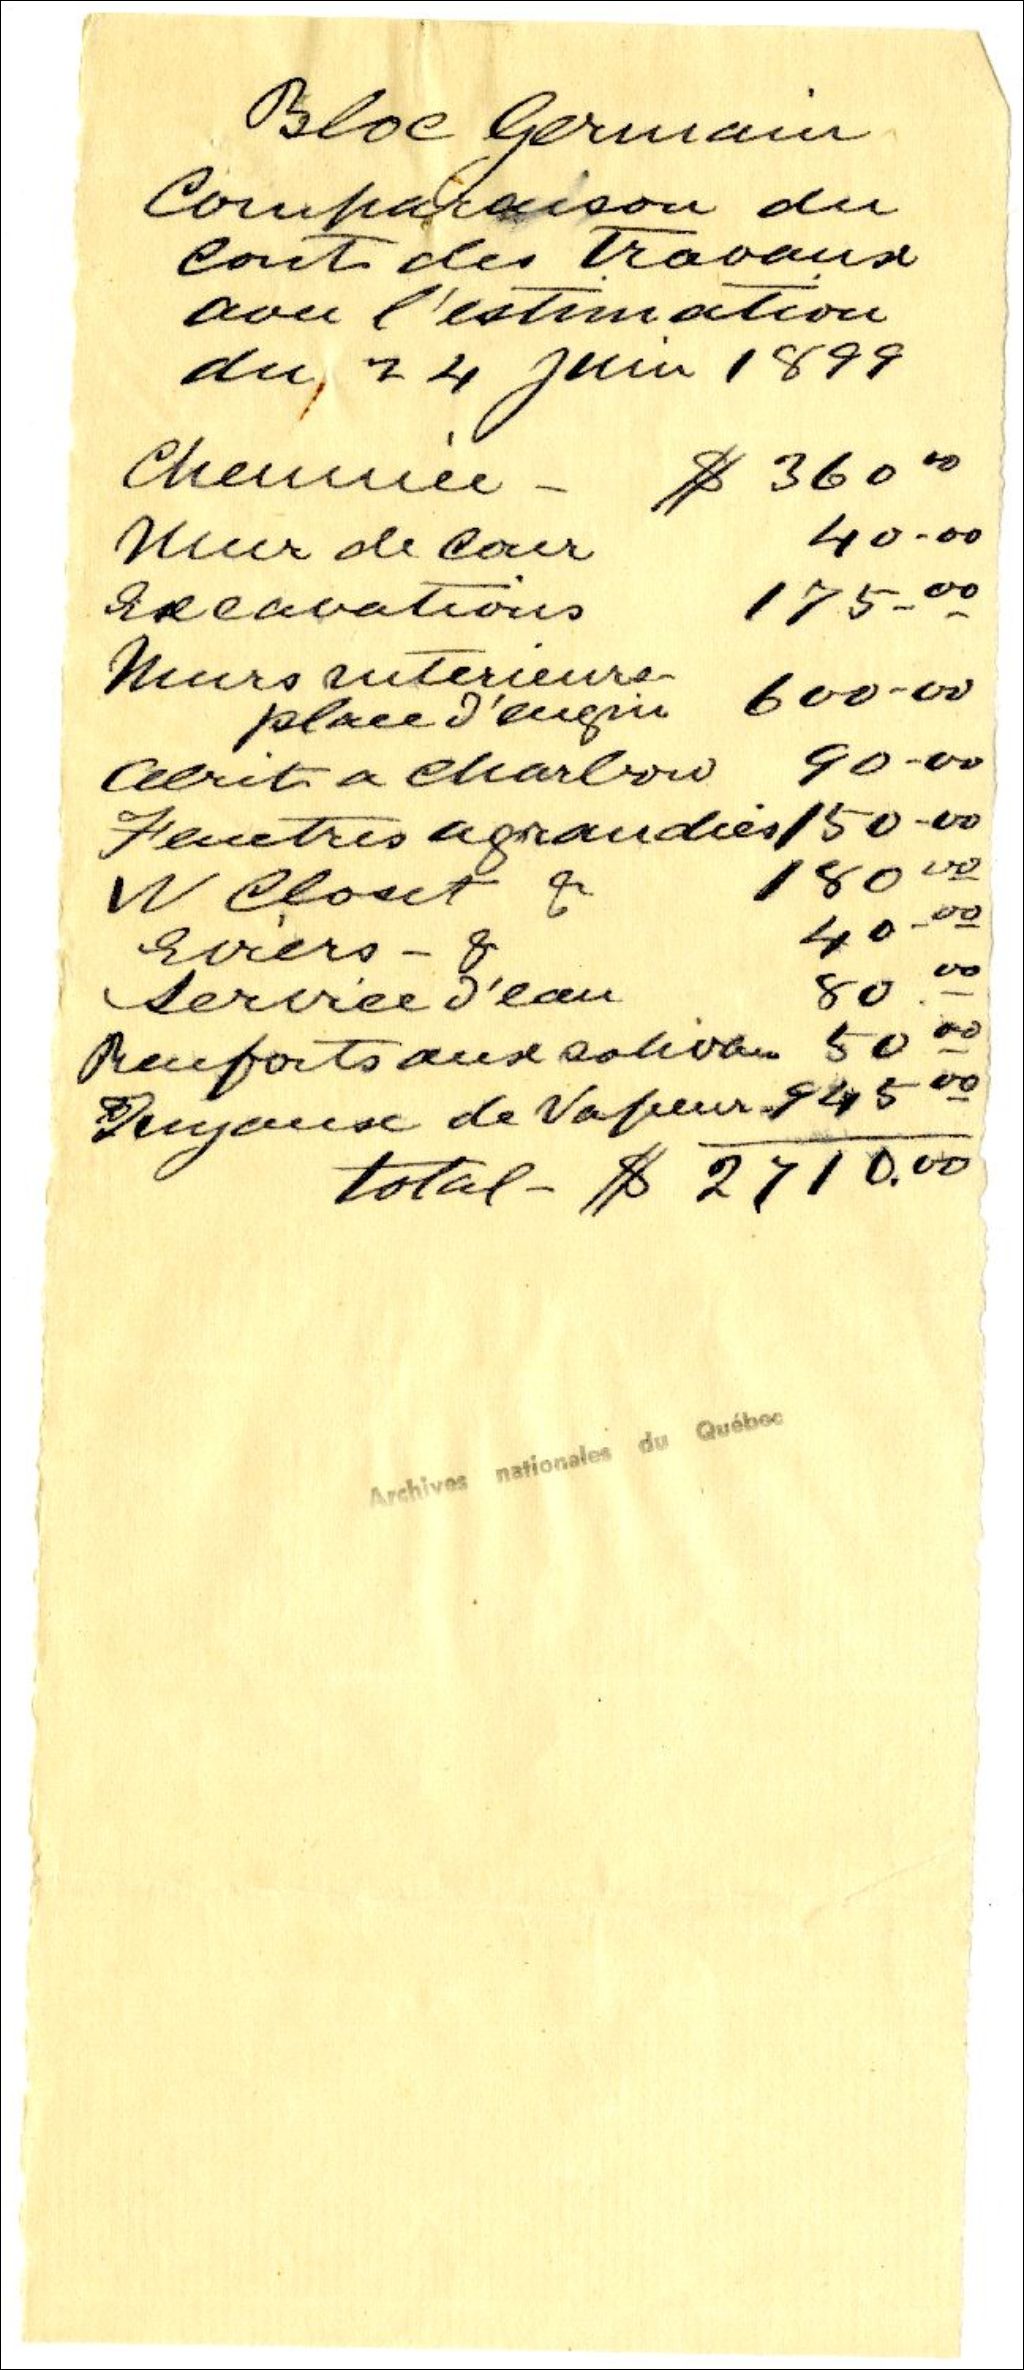 Bloc Germain
Comparaison du
cout des travaux
avec l'estimation
du 24 Juin 1899
Cheminée - $ 360.00
Murs de Cour 40-00
Excavations 175-00
Murs interieurs 600-00
place d'engin
Abrit a charbon 90-00
Fenetres agrandies 150-00
W Closet & 180 00
Eviers - & 40-00
Service d'eau 80.00
Renforts aux soliveau 50 00
Tuyaux de Vapeur 945 00
total - $ 2710.00
Archives nationales du Québec